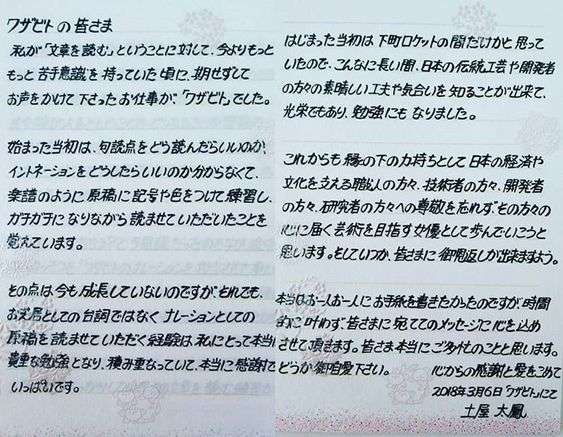 ワザビトの皆さま
私が「文章を読む」ということに対して、今よりもっと
もっと苦手意識を持っていた頃に、期せずして
お声をかけて下さったお仕事が、「ワザビト」でした。
始まった当初は、句読点をどう読んだらいいのか、
イントネーションをどうしたらいいのか分からなくて、
楽譜のように原稿に記号や色をつけて練習し、
ガチガチになりながら読ませていただいたことを
覚えています。
その点は今も成長していないのですが、それでも、
お芝居としての台詞ではなくナレーションとしての
原稿を読ませていただく経験は、私にとって本当に
貴重な勉強となり、積み重なっていて、本当に感謝で
いっぱいです。
はじまった当初は下町ロケットの間だけかと思って
いたので、こんなに長い間、日本の伝統工芸や開発者
の方々の素晴しい工夫や気合いを知ることが出来て、
光栄でもあり、勉強にもなりました。
これからも縁の下の力持ちとして日本の経済や
文化を支える職人の方々、技術者の方々、開発者
の方々、研究者の方々への尊敬を忘れず、その方々の
心に届く芸術を目指す女優として歩んでいこうと
思います。そしていつか、皆さまに御恩返しが出来ますよう。
本当はお一人お一人にお手紙を書きたかったのですが時間
的に叶わず、皆さまに宛ててのメッセージに心を込め
させて頂きます。皆さま本当にご多忙のことと思います。
どうか御自愛下さい。
心からの感謝と愛をこめて
2018年3月6日「ワザビト」にて
土屋 太鳳